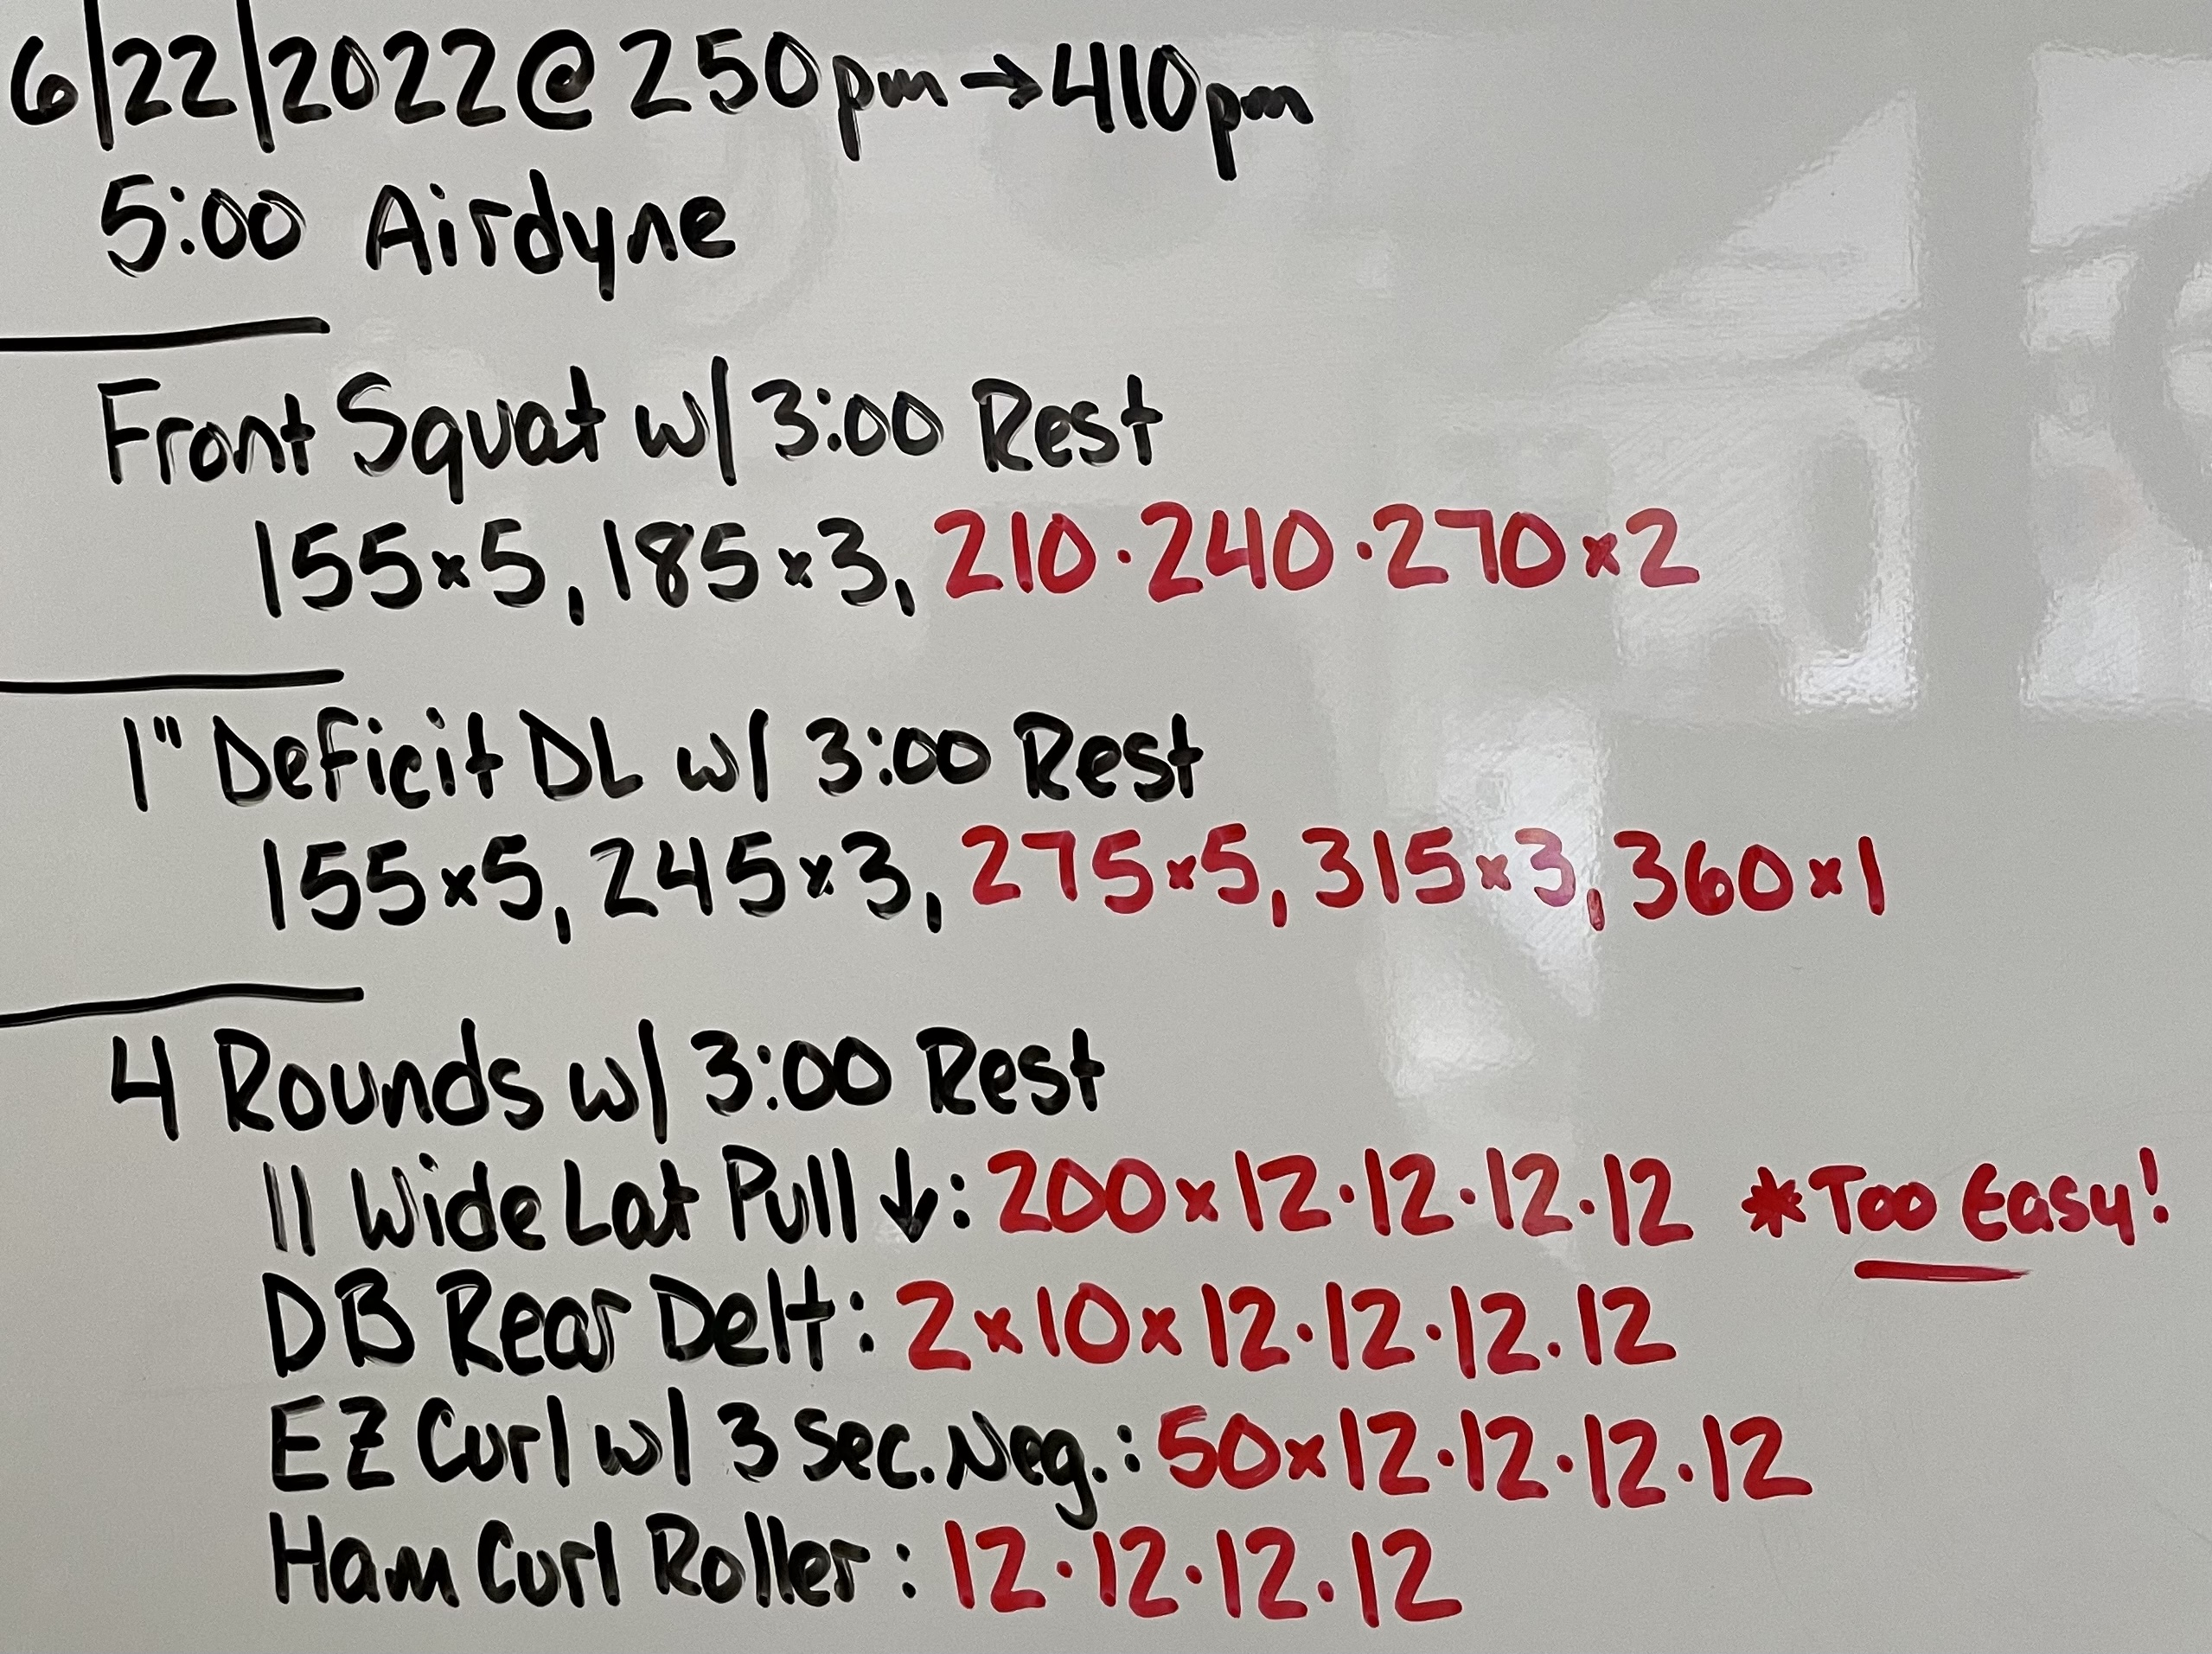 6/22/2022 @ 250pm → 410pm
5:00 Airdyne
Front Squat w/ 3:00 Rest
155x5, 185x3, 210·240·270x2
1" Deficit DL w/ 3:00 Rest
155x5, 245x3, 275x5, 315x3, 360x1
4 Rounds w/ 3:00 Rest
|| Wide Lat Pull ↓: 200x12·12·12·12 *Too Easy!
DB Rear Delt: 2x10x12·12·12·12
EZ Curl w/ 3 Sec. Neg.: 50x12·12·12·12
Ham Curl Roller: 12·12·12·12